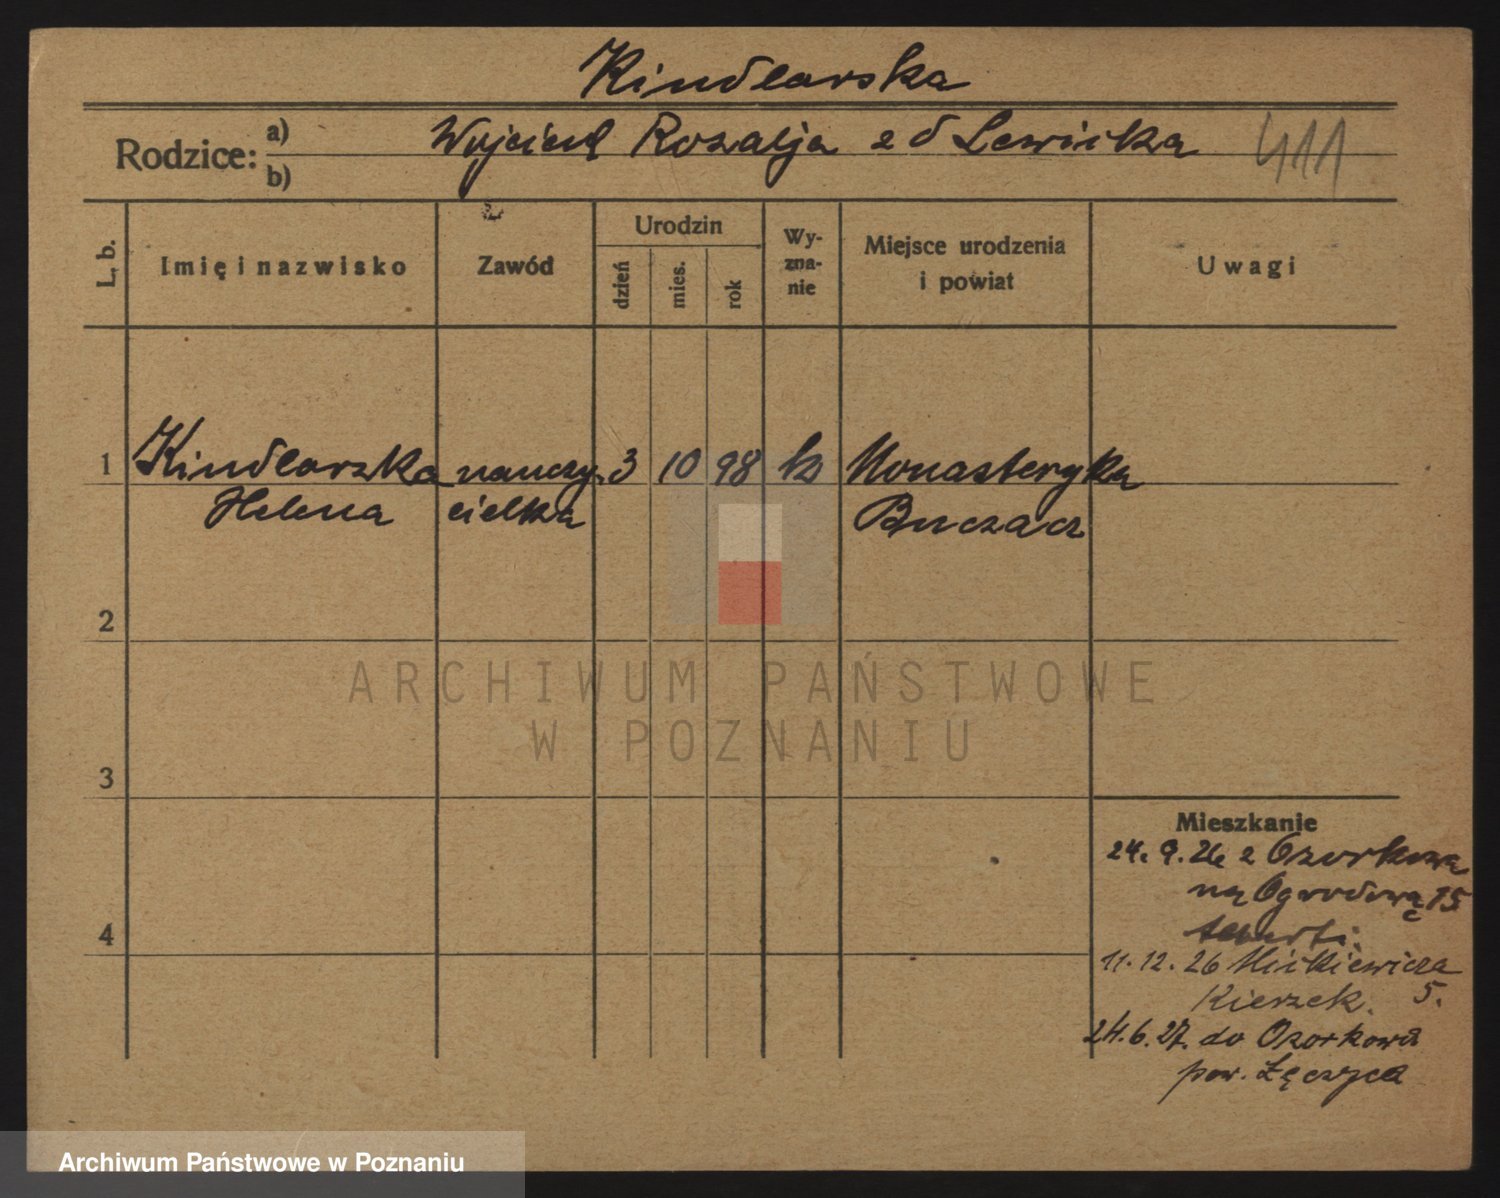 Kindlarska
Rodzice: a) Wojciech Rozalja z d Lewicka 411
b)
L. b.
Imię i nazwisko
Zawód
Urodzin
dzień
mies.
rok
Wy-
zna-
nie
Miejsce urodzenia
i powiat
Uwagi
1 Kindlarska nauczy- 3 10 98 k Monasteryka
Helena cielka Buczacz
2
ARCHIWUM PAŃSTWOWE
W POZNANIU
3
Mieszkanie
24. 9. 26 z Ozorkowa
na Ogrodową 15
4
11. 12. 26 Mickiewicza
Kierzek. 5.
24. 6. 27. do Ozorkowa
pow. Łęczyca
Archiwum Państwowe w Poznaniu